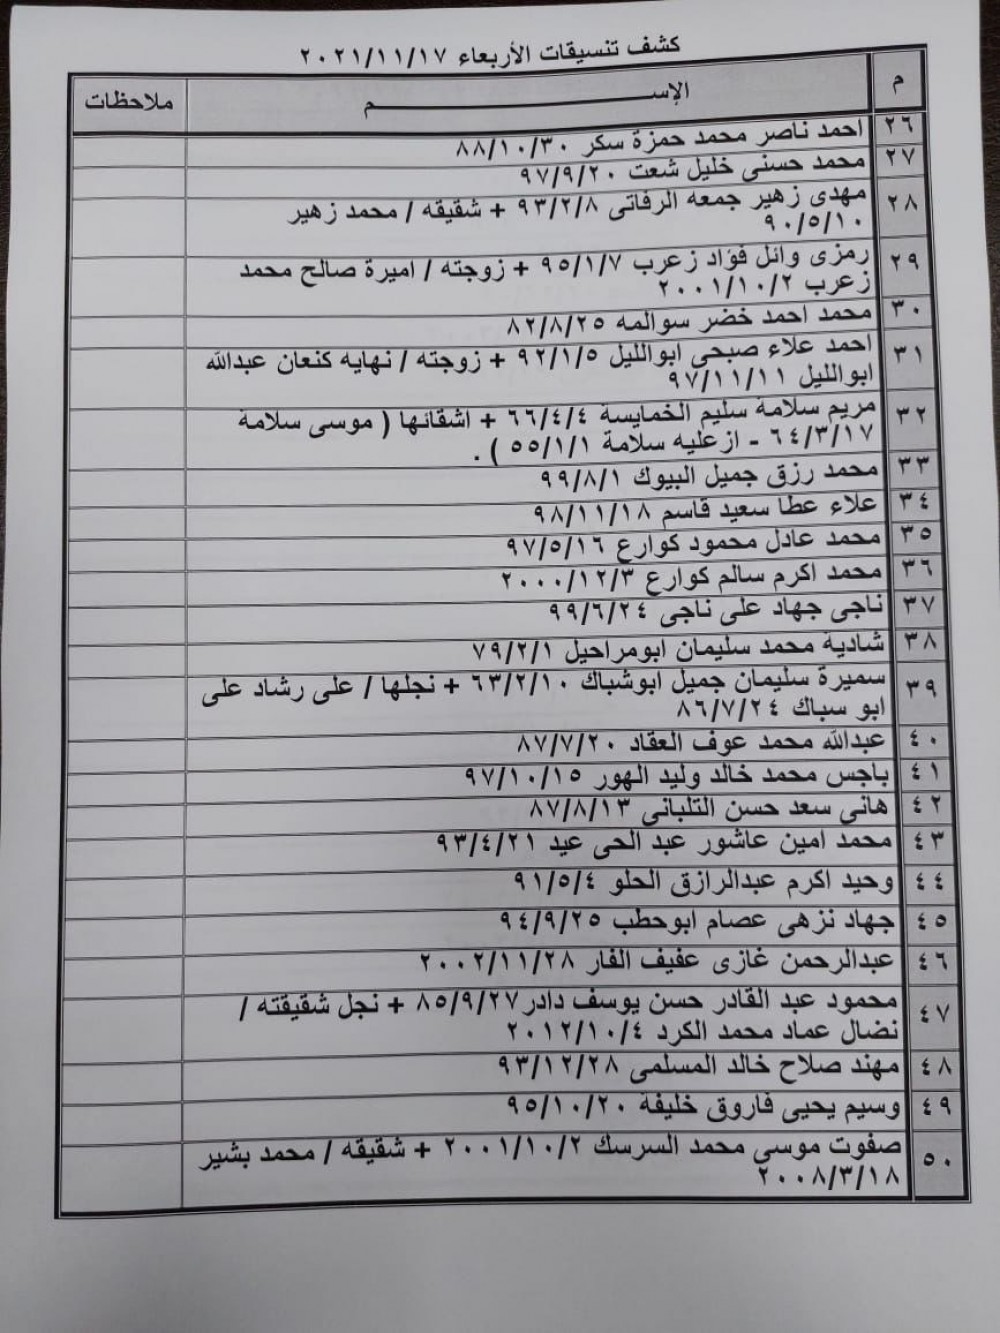 كشف تنسيقات الأربعاء ٢٠٢١/١١/١٧
م الإســـــــــم ملاحظات
٢٦ احمد ناصر محمد حمزة سكر ٨٨/١٠/٣٠
٢٧ محمد حسنى خليل شعت ٩٧/٩/٢٠
٢٨ مهدى زهير جمعه الرفاتى ٩٣/٢/٨ + شقيقه / محمد زهير
٩٠/٥/١٠
٢٩ رمزى وائل فؤاد زعرب ٩٥/١/٧ + زوجته / اميرة صالح محمد
زعرب ٢٠٠١/١٠/٢
٣٠ محمد احمد خضر سوالمه ٨٢/٨/٢٥
٣١ احمد علاء صبحى ابوالليل ٩٢/١/٥ + زوجته / نهايه كنعان عبدالله
ابوالليل ٩٧/١١/١١
٣٢ مريم سلامة سليم الخمايسة ٦٦/٤/٤ + اشقائها ( موسى سلامة
٦٤/٣/١٧ - ازعليه سلامة ٥٥/١/١ ) .
٣٣ محمد رزق جميل البيوك ٩٩/٨/١
٣٤ علاء عطا سعيد قاسم ٩٨/١١/١٨
٣٥ محمد عادل محمود كوارع ٩٧/٥/١٦
٣٦ محمد اكرم سالم كوارع ٢٠٠٠/١٢/٣
٣٧ ناجى جهاد على ناجى ٩٩/٦/٢٤
٣٨ شادية محمد سليمان ابومراحيل ٧٩/٢/١
٣٩ سميرة سليمان جميل ابوشباك ٦٣/٢/١٠ + نجلها / على رشاد على
ابو سباك ٨٦/٧/٢٤
٤٠ عبدالله محمد عوف العقاد ٨٧/٧/٢٠
٤١ باجس محمد خالد وليد الهور ٩٧/١٠/١٥
٤٢ هاني سعد حسن التلبانى ٨٧/٨/١٣
٤٣ محمد امين عاشور عبد الحى عيد ٩٣/٤/٢١
٤٤ وحيد اكرم عبدالرازق الحلو ٩١/٥/٤
٤٥ جهاد نزهى عصام ابوحطب ٩٤/٩/٢٥
٤٦ عبدالرحمن غازى عفيف الفار ٢٠٠٢/١١/٢٨
٤٧ محمود عبد القادر حسن يوسف دادر٨٥/٩/٢٧ + نجل شقيقته /
نضال عماد محمد الكرد ٢٠١٢/١٠/٤
٤٨ مهند صلاح خالد المسلمى ٩٣/١٢/٢٨
٤٩ وسيم يحيى فاروق خليفة ٩٥/١٠/٢٠
٥٠ صفوت موسى محمد السرسك ٢٠٠١/١٠/٢ + شقيقه / محمد بشير
٢٠٠٨/٣/١٨